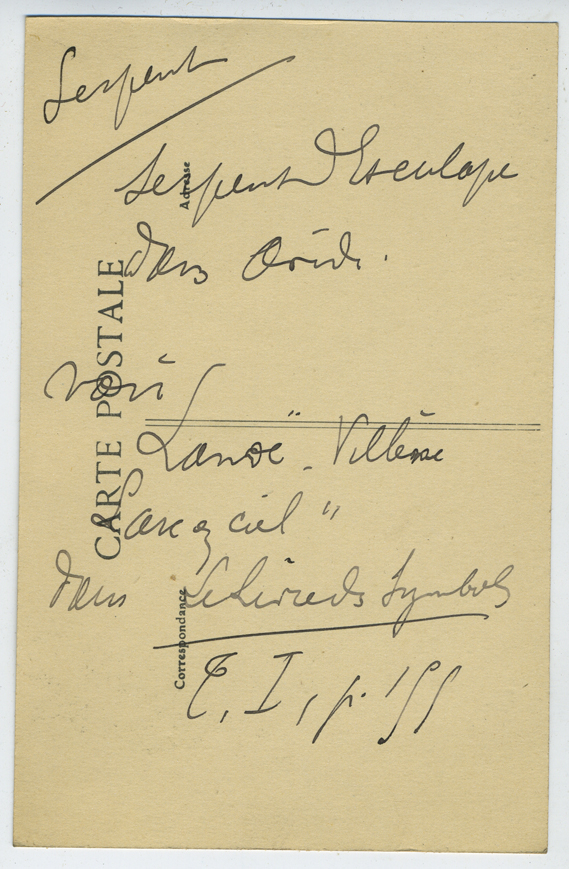 Serpent
Serpent d'Esculape
dans Ovide.
voir
Lanoë-Villène
"arc en ciel"
dans Le Livre des Symboles
T. I, p. 155
CARTE POSTALE
Adresse
Correspondance